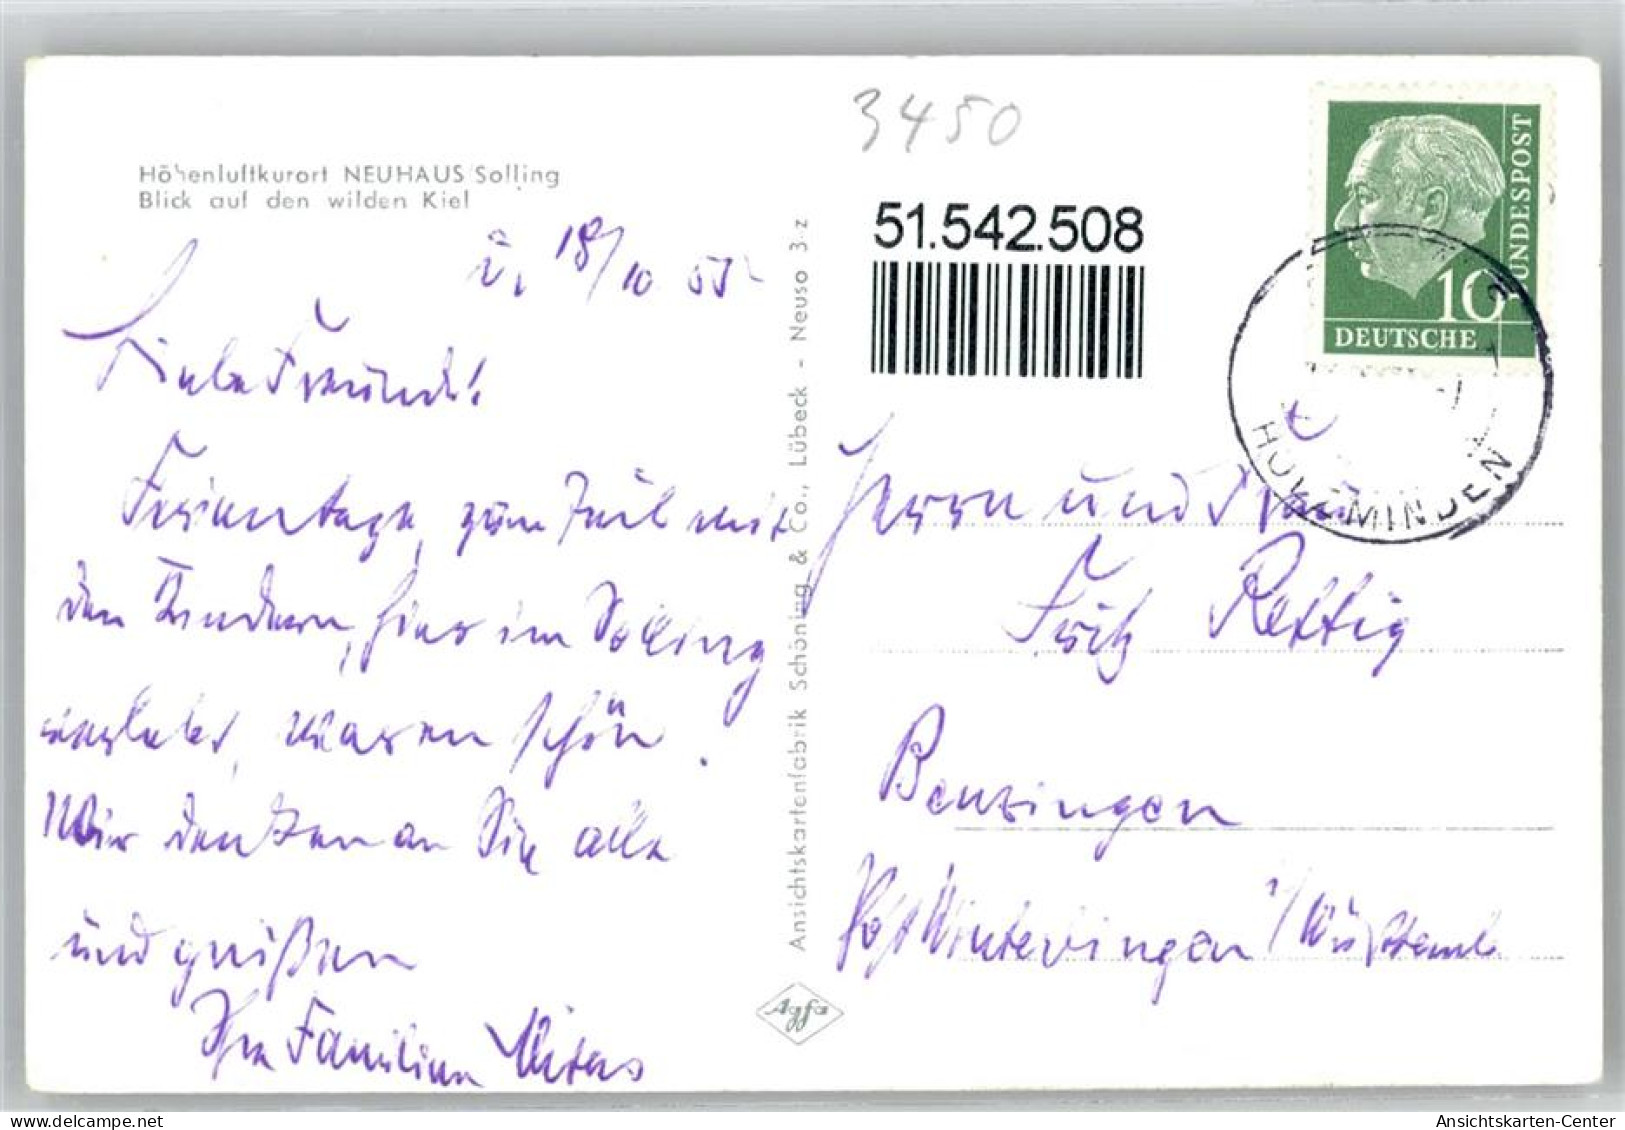 Höhenluftkurort NEUHAUS/Solling
Blick auf den wilden Kiel
18/10 55
Liebe Freunde!
Ferientage, zum Teil mit
den Kindern, hier im Solling
verlebt, waren schön.
Wir denken an Sie alle
und grüßen
Ihre Familien
Ansichtskartenfabrik Schöning & Co., Lübeck - Neuso 3 z
Agfa
3450
51.542.508
DEUTSCHE
BUNDESPOST
10
HOLZMINDEN
Herrn und Frau
Fritz Rettig
Benzingen
Post Winterlingen i/Württemb.
Ansichtskarten-Center